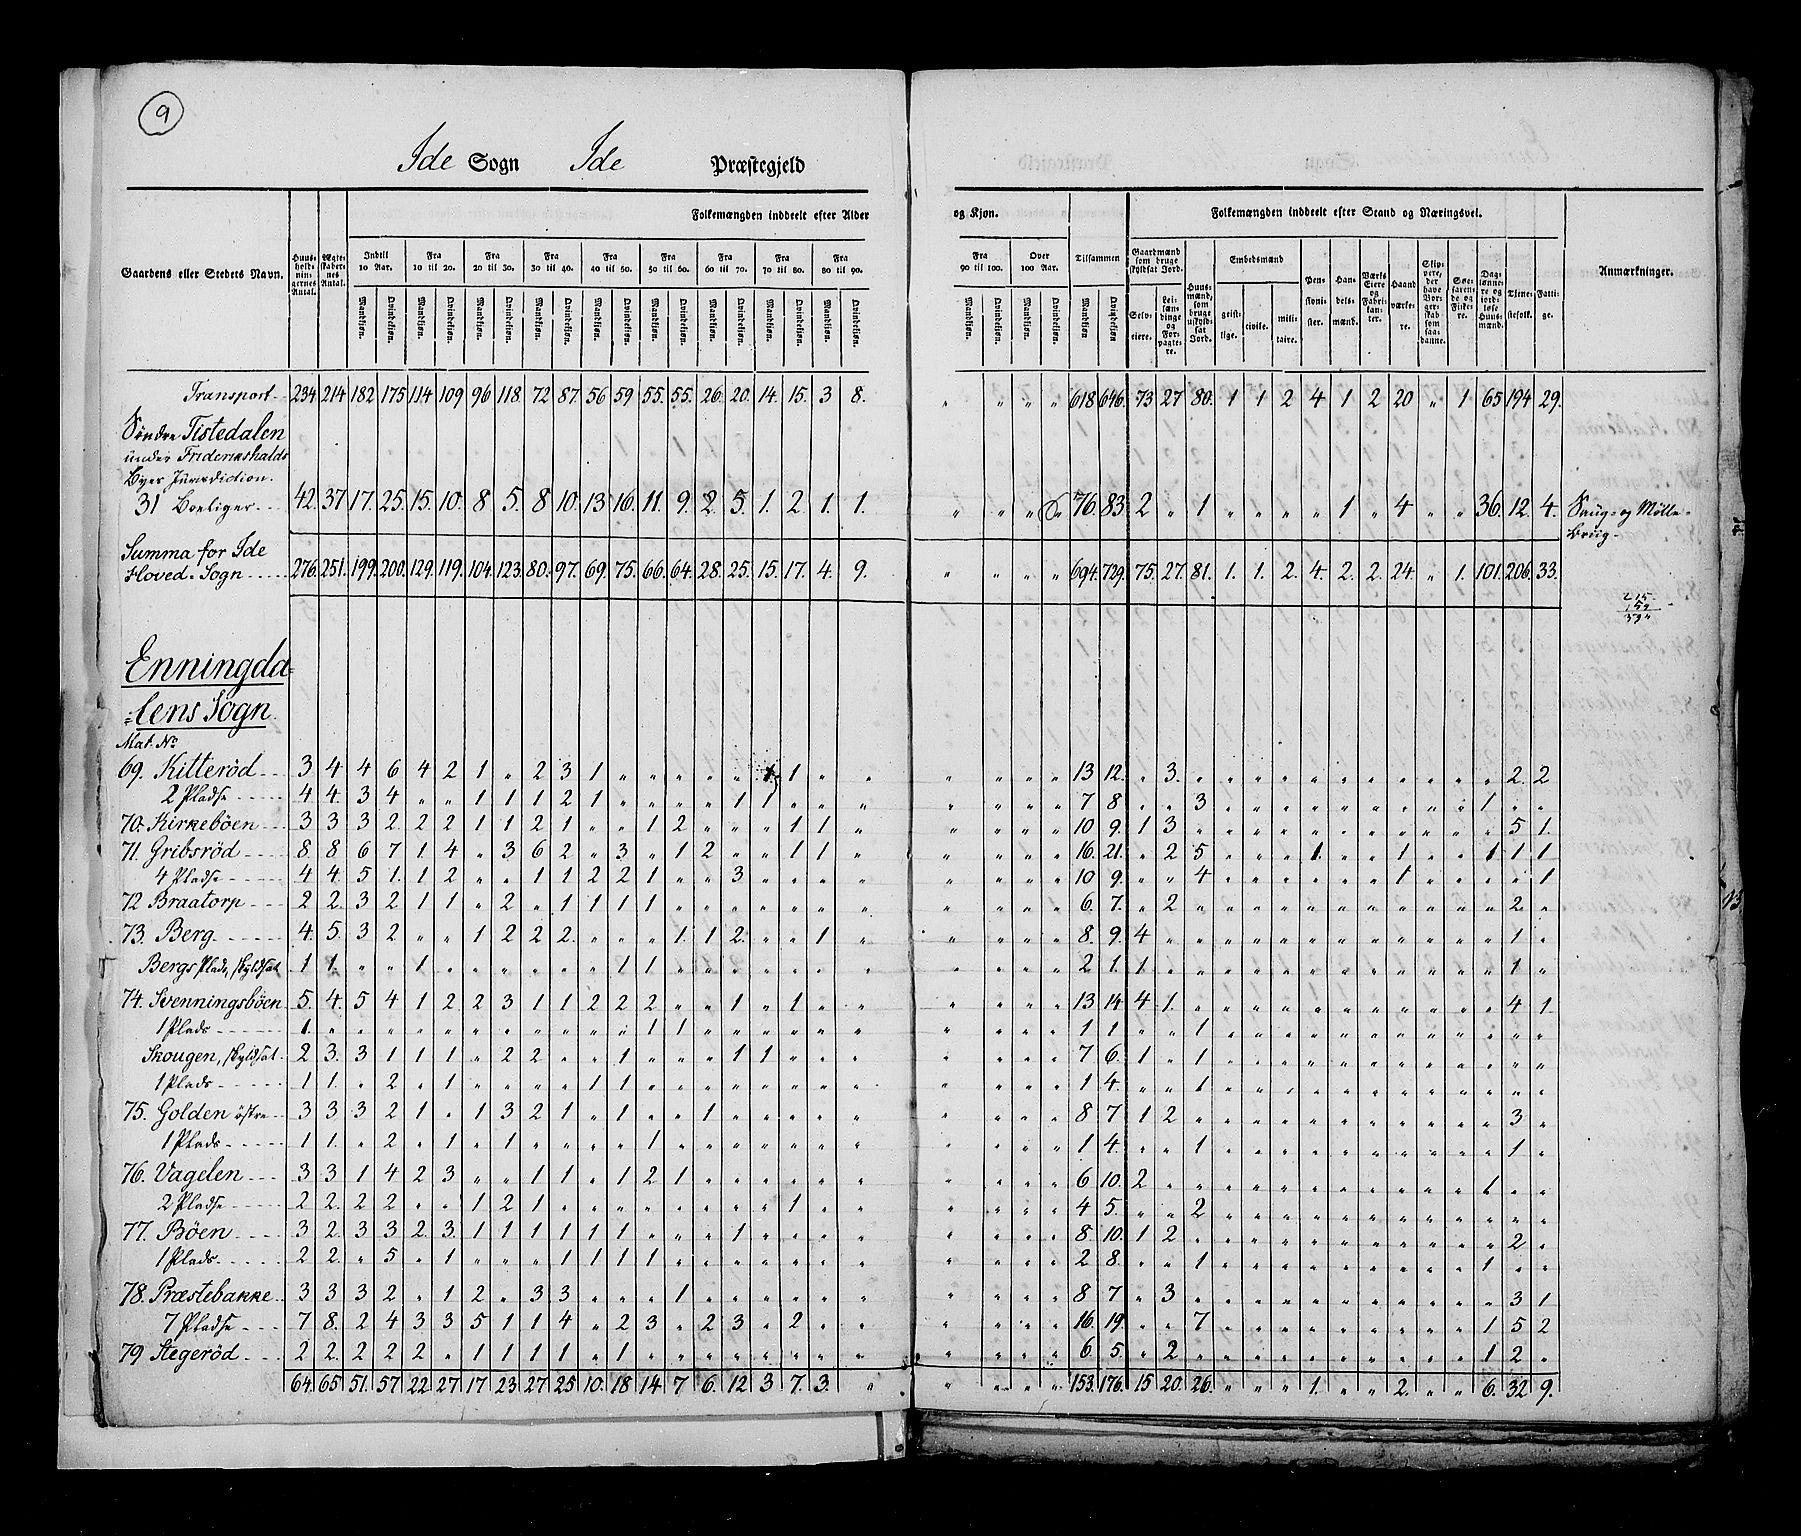 9
Ide Sogn Ide Præstegjeld
Folkemængden inddeelt efter Alder og Kjøn. Folkemængden inddeelt efter Stand og Næringsvei.
Gaardens eller Stedets Navn. Huusholdningernes Antal. Ægteskabernes Antal. Indtil 10 Aar. Fra 10 til 20. Fra 20 til 30. Fra 30 til 40. Fra 40 til 50. Fra 50 til 60. Fra 60 til 70. Fra 70 til 80. Fra 80 til 90. Fra 90 til 100. Over 100 Aar. Tilsammen Gaardmænd som bruge skyldsat Jord. Huusmænd, som bruge uskyldsat Jord. Embedsmænd Pensionister. Handelsmænd. Værks Eiere og Fabrikanter. Haandværkere. Skippere, der have Borgerskab som saadanne. Søefarende og Fiskere. Daglønnere og jordløse Huusmænd. Tjenestefolk. Fattige. Anmærkninger.
Mandkiøn. Qvindekiøn. Mandkiøn. Qvindekiøn. Mandkiøn. Qvindekiøn. Mandkiøn. Qvindekiøn. Mandkiøn. Qvindekiøn. Mandkiøn. Qvindekiøn. Mandkiøn. Qvindekiøn. Mandkiøn. Qvindekiøn. Mandkiøn. Qvindekiøn. Mandkiøn. Qvindekiøn. Mandkiøn. Qvindekiøn. Mandkiøn Qvindekiøn Selveiere. Leilændinge og Forpagtere. geistlige. civile. militaire.
Transport 234 214 182 175 114 109 96 118. 72 87. 56 59 55. 55. 26. 20. 14. 15. 3 8. " " " " 618 646. 73 27 80. 1 1 2 4 1 2 20 " 1 65 194 29.
Söndre Tistedalen
under Frideriskshalds
Byes Jurisdiction.
31 Boeliger 42. 37 17. 25. 15. 10. 8 5. 8 10. 13 16. 11. 9. 2. 5. 1. 2. 1. 1. " " " " 76. 83. 2 " 1 " " " " 1 " 4 " " 36. 12. 4. Saug- og Mölle-
brug-
Summa for Ide
Hoved-Sogn 276. 251. 199. 200. 129. 119. 104. 123. 80. 97. 69. 75. 66. 64. 28. 25. 15. 17. 4. 9. " " " " 694. 729. 75. 27. 81. 1. 1. 2. 4. 2. 2. 24. " 1. 101. 206. 33.
215
159
Enningda-
lens Sogn.
Mat. No
69. Kitteröd 3 4 4 6 4 2 1 " 2 3 1 " " " " " 1 1 " " " " " " 13 12. " 3. " " " " " " " " " " " 2. 2
2 Pladse 4 4. 3 4 " " 1 1 1 2 1 " " " " 1 1 " " " " " " " 7 8 " " 3 " " " " " " " " " 1 " "
70. Kirkeböen 3 3 3 2 2 2 1 1 2 1 " " 1 2 " " " 1 1 " " " " " 10 9. 1 3 " " " " " " " " " " " 5 1.
71. Gribsröd 8. 8 6 7 1. 4 " 3 6 2 " 3 " 1 2 " " 1 1 " " " " " 16. 21. " 2 5 " " " 1. " " 1 " " 1 1 1
4 Pladse 4 4. 5 1. 1 2 " " 1 1 2 2 1 " " 3 " " " " " " " " 10 9. " " 4 " " " " " " 1 " " " " 1
72 Braatorp 2 2. 3 2 1 1 " 2 " 1 1 1 1 " " " " " " " " " " " 6. 7. " 2 " " " " " " " " " " " 2 "
73. Berg 4. 5. 3 2 " " 1 2 2 2. " " " 1. 1 2. " " 1 " " " " " 8. 9. 4 " " " " " " " " " " " " 1 "
Bergs Plads, skyldsat 1 1. " " 1 " " " " " " 1 1 " " " " " " " " " " " 2 1. 1 " " " " " " " " " " " " 1 "
74. Svenningsböen 5. 4. 5 4 1 2 2 3 1 1 2 2 2 " " 1 " 1 " " " " " " 13 14 4 1. " " " " " " " " " " " 4 1
1 Plads 1. " " " " " " " " " " " 1 1 " " " " " " " " " " 1 1 " " 1 " " " " " " " " " " " "
Skougen, skyldsat 2 3. 3 1 1 1 " 2 2 " " 1 " " " 1 1 " " " " " " " 7 6. 1 " 1 " " " " " " " " " " " "
1 Plads 1 1. " 2 " 1 " " " " 1 1 " " " " " " " " " " " " 1 4. " " 1 " " " " " " " " " " " "
75. Golden östre 3 3 3 2 1 " 1 3 2 1 " 1 " " 1 " " " " " " " " " 8 7 1 2 " " " " " " " " " " " 3 "
1 Plads 1 1. " 2 " 1 " 1 " " " " 1 " " " " " " " " " " " 1 4. " " 1 " " " " " " " " " " 1 "
76. Vagelen 3 3 1 4 2 3 " " 1 1 " 1 2 1 " " " " " " " " " " 6 10. 2 " " " " " " " " " " " 1 " "
2 Pladse 2 2. 2 2 " " 1 2 1 " " " " " " " " 1 " " " " " " 4 5. " " 2 " " " " " " " " " " " "
77. Böen 3 2. 3 3 2. 3. 1 1 1 1 1 1 " " " 1 " " " " " " " " 8 10. 1 2 " " " " " " " " " " " 2 "
1 Plads 2 2. " 5 " 1 " " " 1 1 1 1 " " " " " " " " " " " 2 8. " " 1 " " " " " " " " " 1 " "
78. Præstebakke 3 3 3 2 " 1 2 " 3 3 " " " 1 " " " " " " " " " " 8 7 " 3 " " " " " " " " " " " 3 1
7 Pladse 7 8. 2 4 3 3 5 1 1 4 " 2 3 " 2 3 " 2 " " " " " " 16. 19. " " 7 " " " " " " " " " 1 5 2
79 Stegeröd 2 2. 2 2 2 " 1 1 1 1 " 1 " " " " " " " " " " " " 6. 5. " 2 " " " " " " " " " " 1 2 "
64. 65 51. 57 22 27 17 23 27 25 10. 18 14 7 6. 12 3 7. 3. " " " " " 153. 176. 15 20. 26. " " " 1. " " 2. " " 6. 32 9.